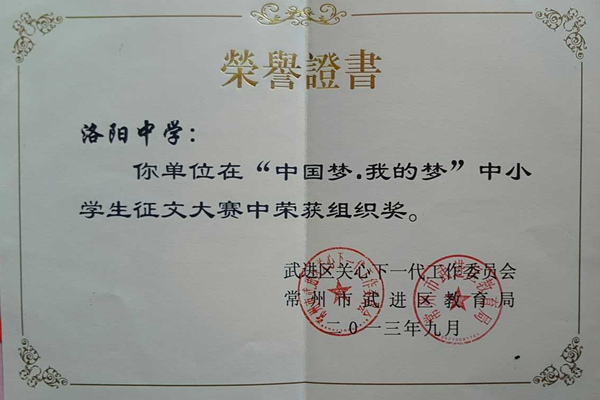 榮譽證書
洛阳中学：
你单位在“中国梦.我的梦”中小
学生征文大赛中荣获组织奖。
武进区关心下一代工作委员会
常州市武进区教育局
二〇一三年九月